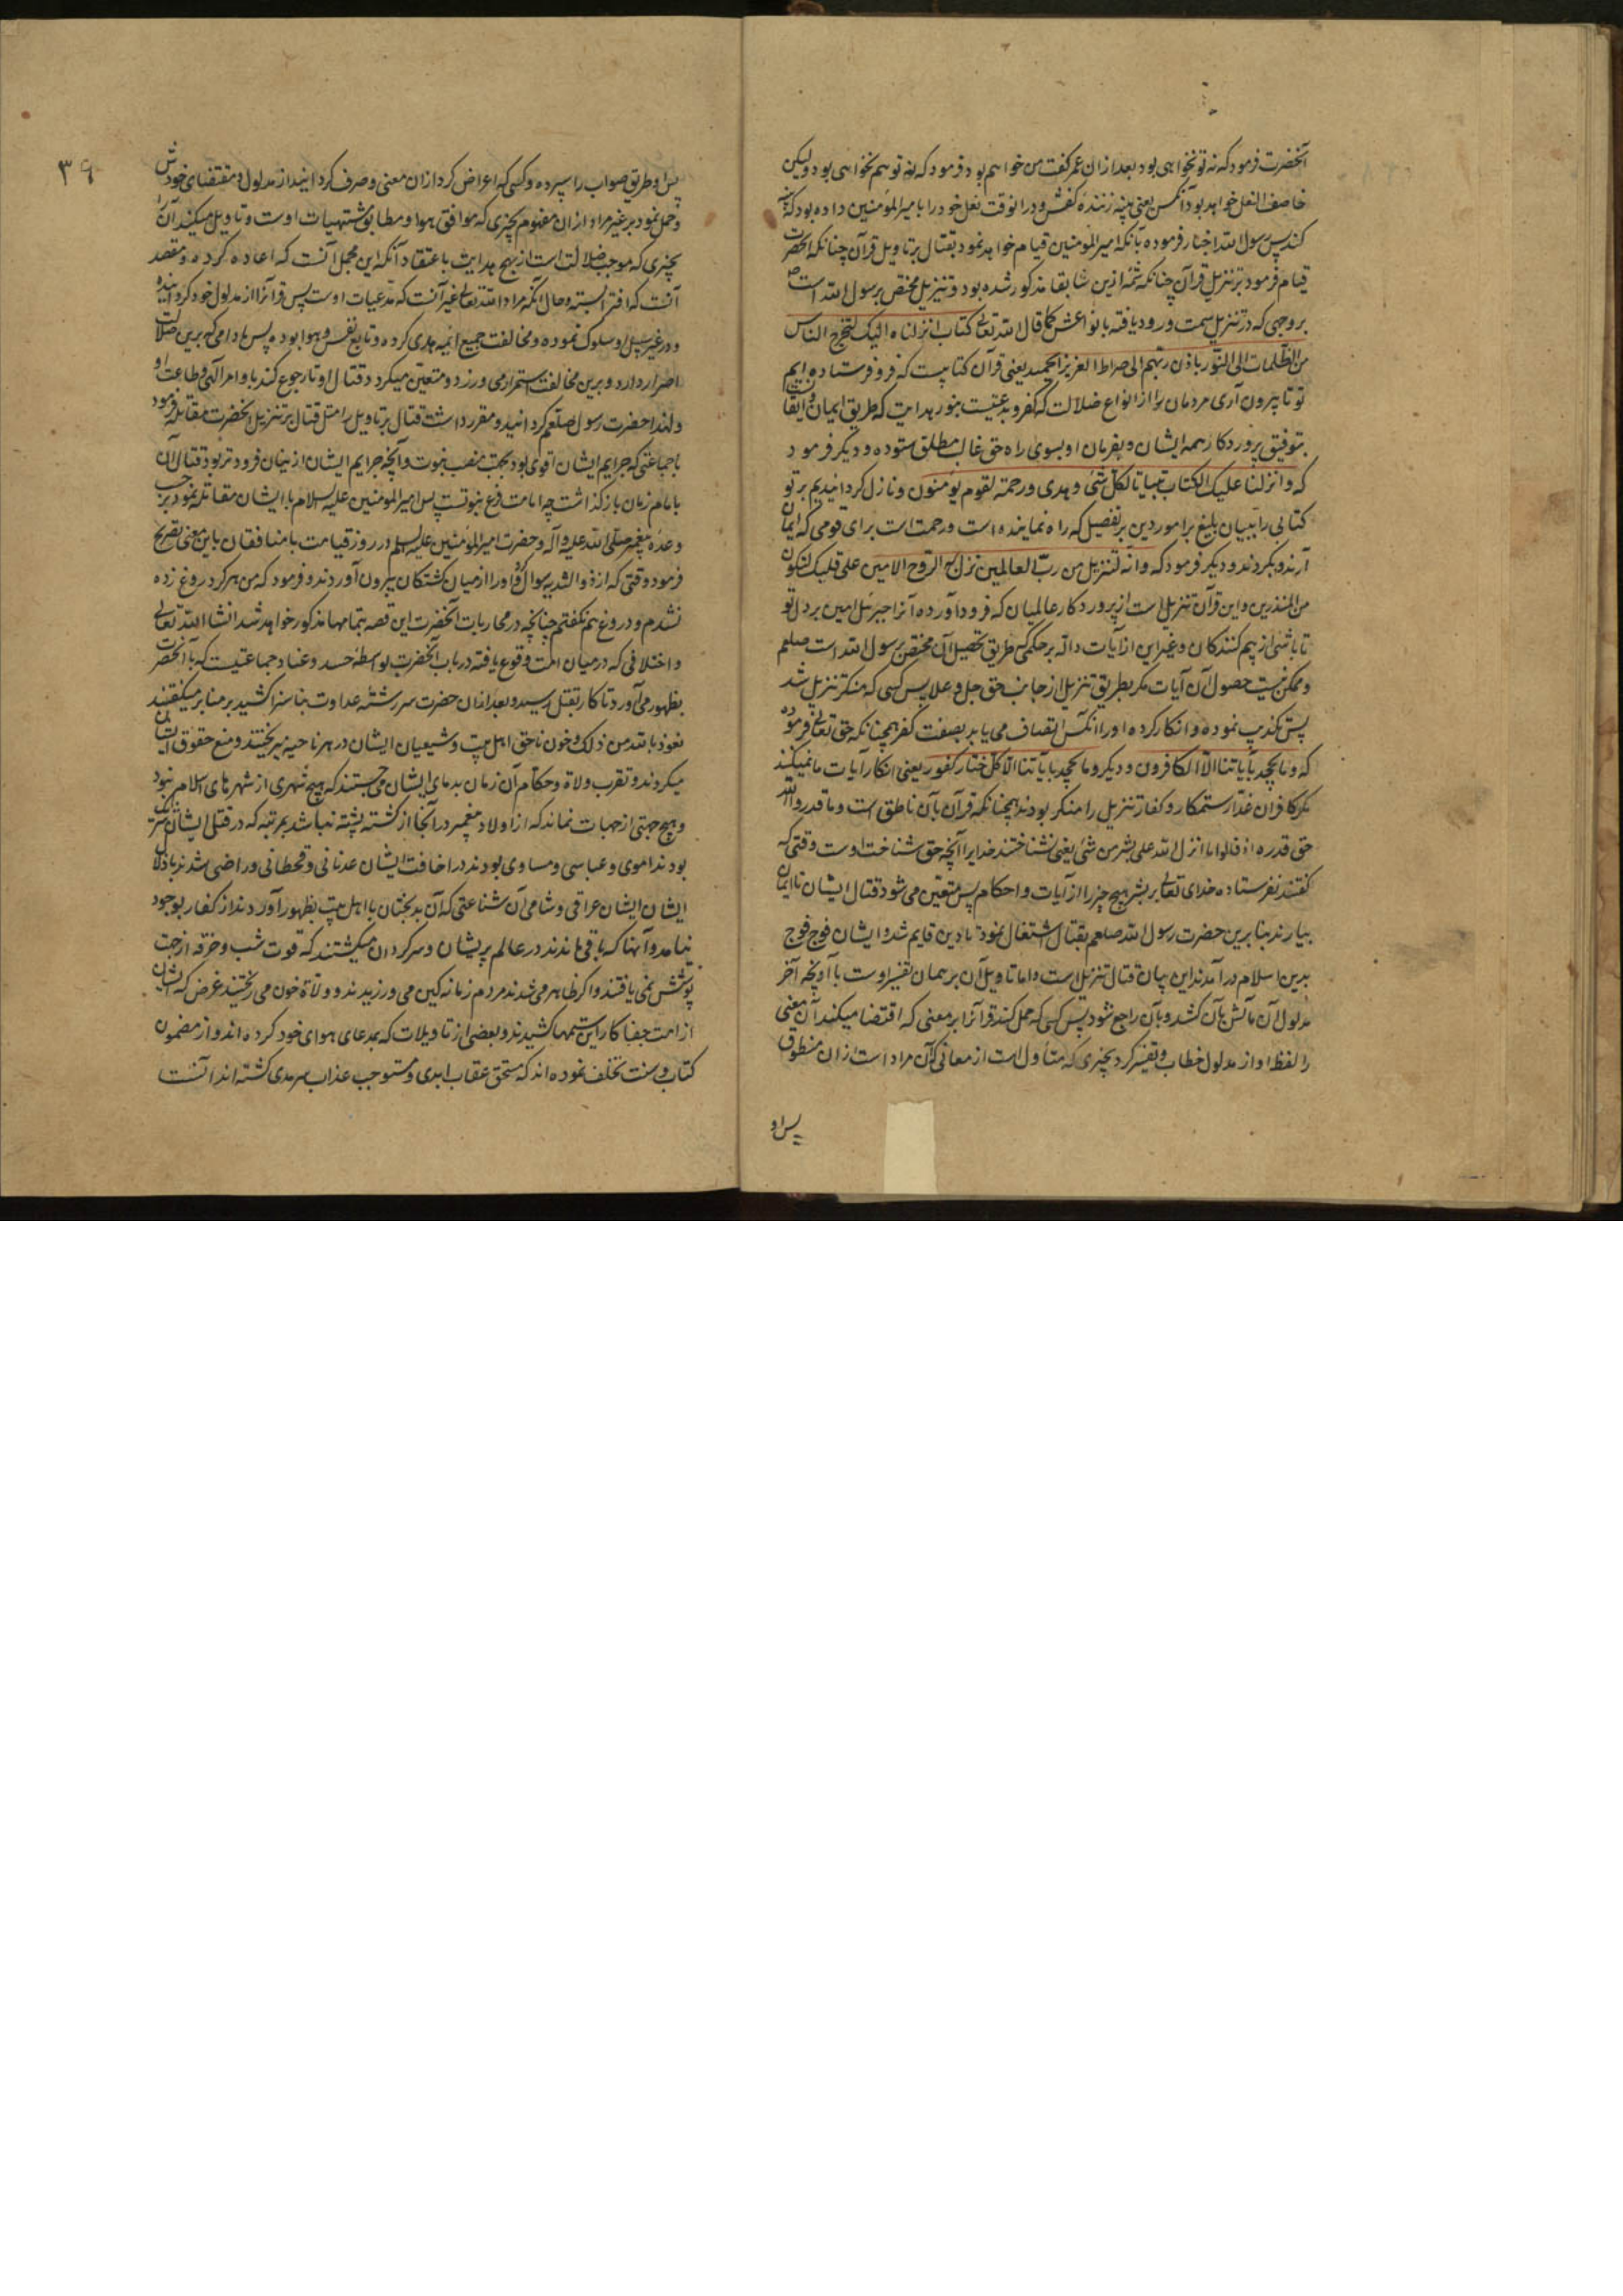 آنحضرت فرمود که نه تو نخواهی بود بعد ازان عمر گفت من خواهم بود فرمود که نه تو هم نخواهی بود ولیکن
خاصف النعل خواهد بود آنکس یعنی پینه زننده کفش و درانوقت نعل خود را بامیرالمؤمنین داده بود که پینه
کند پس رسول الله اخبار فرموده بآنکه امیرالمؤمنین قیام خواهد نمود بقتال بر تاویل قرآن چنانکه آنحضرت
قیام فرمود بر تنزیل قرآن چنانکه شمه ازین سابقا مذکور شده بود و تنزیل مختص برسول الله است ص
بر وجهی که در تنزیل سمت ورود یافته بانواعش کما قال الله تعالی کتاب انزلناه الیک لتخرج الناس
من الظلمات الی النور باذن ربهم الی صراط العزیز الحمید یعنی قرآن کتابیست که فرو فرستاده ایم
تو تا بیرون آری مردمان را از انواع ضلالت که کفر و بدعتیست بنور هدایت که طریق ایمان و ایقان
بتوفیق پروردکار همه ایشان و بفرمان او بسوی راه حق غالب مطلق ستوده و دیگر فرمود
که و انزلنا علیک الکتاب تبیانا لکل شئ و هدی و رحمة لقوم یؤمنون و نازل کردانیدیم بر تو
کتابی را ببیان بلیغ بر امور دین بر تفصیل که راه نماینده است و رحمت است برای قومی که ایمان
آرند و بگروند و دیگر فرمود که و انه لتنزیل من رب العالمین نزل به الروح الامین علی قلبک لتکون
من المنذرین و این قرآن تنزیل است از پروردکار عالمیان که فرود آورده آنرا جبرئیل امین بر دل تو
تا باشی از بیم کنندکان و غیر این از آیات داله بر حکمی که طریق تحصیل آن مختص برسول الله است صلعم
و ممکن نیست حصول آن آیات مگر بطریق تنزیل از جانب حق جل و علا پس کسی که منکر تنزیل شد
پس تکذیب نموده و انکار کرده او را آنکس اتصاف می یابد بصفت کفر همچنانکه حق تعالی فرموده
که و ما یجحد بآیاتنا الا الکافرون و دیگر و ما یجحد بآیاتنا الا کل ختار کفور یعنی انکار آیات ما نمیکند
مگر کافران غدار ستمکار و کفار تنزیل را منکر بودند همچنانکه قرآن بآن ناطق است و ما قدروا الله
حق قدره اذ قالوا ما انزل الله علی بشر من شئ یعنی نشناختند خدایرا آنچه حق شناخت اوست وقتی که
گفتند نفرستاده خدای تعالی بر بشر هیچ چیز را از آیات و احکام پس متعین می شود قتال ایشان تا ایمان
بیارند بنابرین حضرت رسول الله صلعم بقتال اشتغال نمود تا دین قایم شد و ایشان فوج فوج
بدین اسلام در آمدند این بیان قتال تنزیل است و اما تاویل آن بر همان تفسیر اوست بآ آنچه آخر
مدلول آن مآلش بآن کشد و بآن راجع شود پس کسی که حمل کند قرآنرا بر معنی که اقتضا میکند آن معنی
را لفظ او از مدلول خطاب و تفسیر کرد بچیزی که متأول است از معانی که آن مراد است ازان منطوق
پس او
۳۹
پس او طریق صواب را سپرده و کسی که اعراض کرد ازان معنی و صرف کردانید از مدلول و مقتضای خودش
و حمل نمود بر غیر مراد ازان مفهوم بچیزی که موافق هوا و مطابق مشتهیات اوست و تاویل میکند آن را
بچیزی که موجب ضلالت است از نهج هدایت باعتقاد آنکه این محمل آنست که اعاده کرده و مقصد
آنست که افترا بسته و حال آنکه مراد الله تعالی غیر آنست که مدعیات اوست پس قرآنرا از مدلول خود کردانیده
و در غیر سبیل او سلوک نموده و مخالفت جمیع ائمه هدی کرده و تابع نفس و هوا بوده پس مادامی که برین ضلالت
اصرار دارد و برین مخالفت استمرار می ورزد و متعین میکردد قتال او تا رجوع کند باوامر الهی و طاعت او
و لهذا حضرت رسول صلعم کردانید و مقرر داشت قتال بر تاویل را مثل قتال بر تنزیل آنحضرت مقاتله فرمود
با جماعتی که جرایم ایشان اقوی بود بجهت منصب نبوت و آنچه جرایم ایشان ازینان فرودتر بود قتال آن
بامام زمان بازگذاشت چه امامت فرع نبوتست پس امیرالمومنین علیه السلام با ایشان مقاتله نمود بر حسب
وعده پیغمبر صلی الله علیه و آله و حضرت امیرالمؤمنین علیه السلام در روز قیامت با منافقان باین معنی تصریح
فرمود وقتی که از ذو الثدیه سوال کرد و او را از میان کشتگان بیرون آوردند و فرمود که من هرگز دروغ زده
نشدم و دروغ هم نگفتم چنانچه در محاربات آنحضرت این قصه بتمامها مذکور خواهد شد انشا الله تعالی
و اختلافی که در میان امت وقوع یافته در باب آنحضرت بواسطه حسد و عناد جماعتیست که با آنحضرت
بظهور می آورد تا کار بقتل رسید و بعد ازان حضرت سر رشته عداوت بناسزا کشید بر منابر میگفتند
نعوذ بالله من ذلک و خون ناحق اهل بیت و شیعیان ایشان در هر ناحیه میریختند و منع حقوق ایشان
میکردند و تقرب ولاة و حکام آن زمان بدمای ایشان می جستند که هیچ شهری از شهرهای اسلام نبود
و هیچ جهتی از جهات نماند که از اولاد پیغمبر در آنجا از کشته پشته نباشد بمرتبه که در قتل ایشان شریک
بودند اموی و عباسی و مساوی بودند در اخافت ایشان عدنانی و قحطانی و راضی شدند باذلال
ایشان ایشان عراقی و شامی آن شناعتی که آن بدبختان با اهل بیت بظهور آوردند از کفار بوجود
نیامد و آنها که باقی ماندند در عالم پریشان و سرگردان میگشتند که قوت شب و خرقه از جهت
پوشش نمی یافتند و اگر ظاهر می شدند مردم زمانه کین می ورزیدند و ولاة خون می ریختند غرض که ایشان
از امت جفاکار این ستمها کشیدند و بعضی از تاویلات که بمدعای هوای خود کرده اند و از مضمون
کتاب و سنت تخلف نموده اند که مستحق عقاب ابدی و مستوجب عذاب سرمدی گشته اند آنست